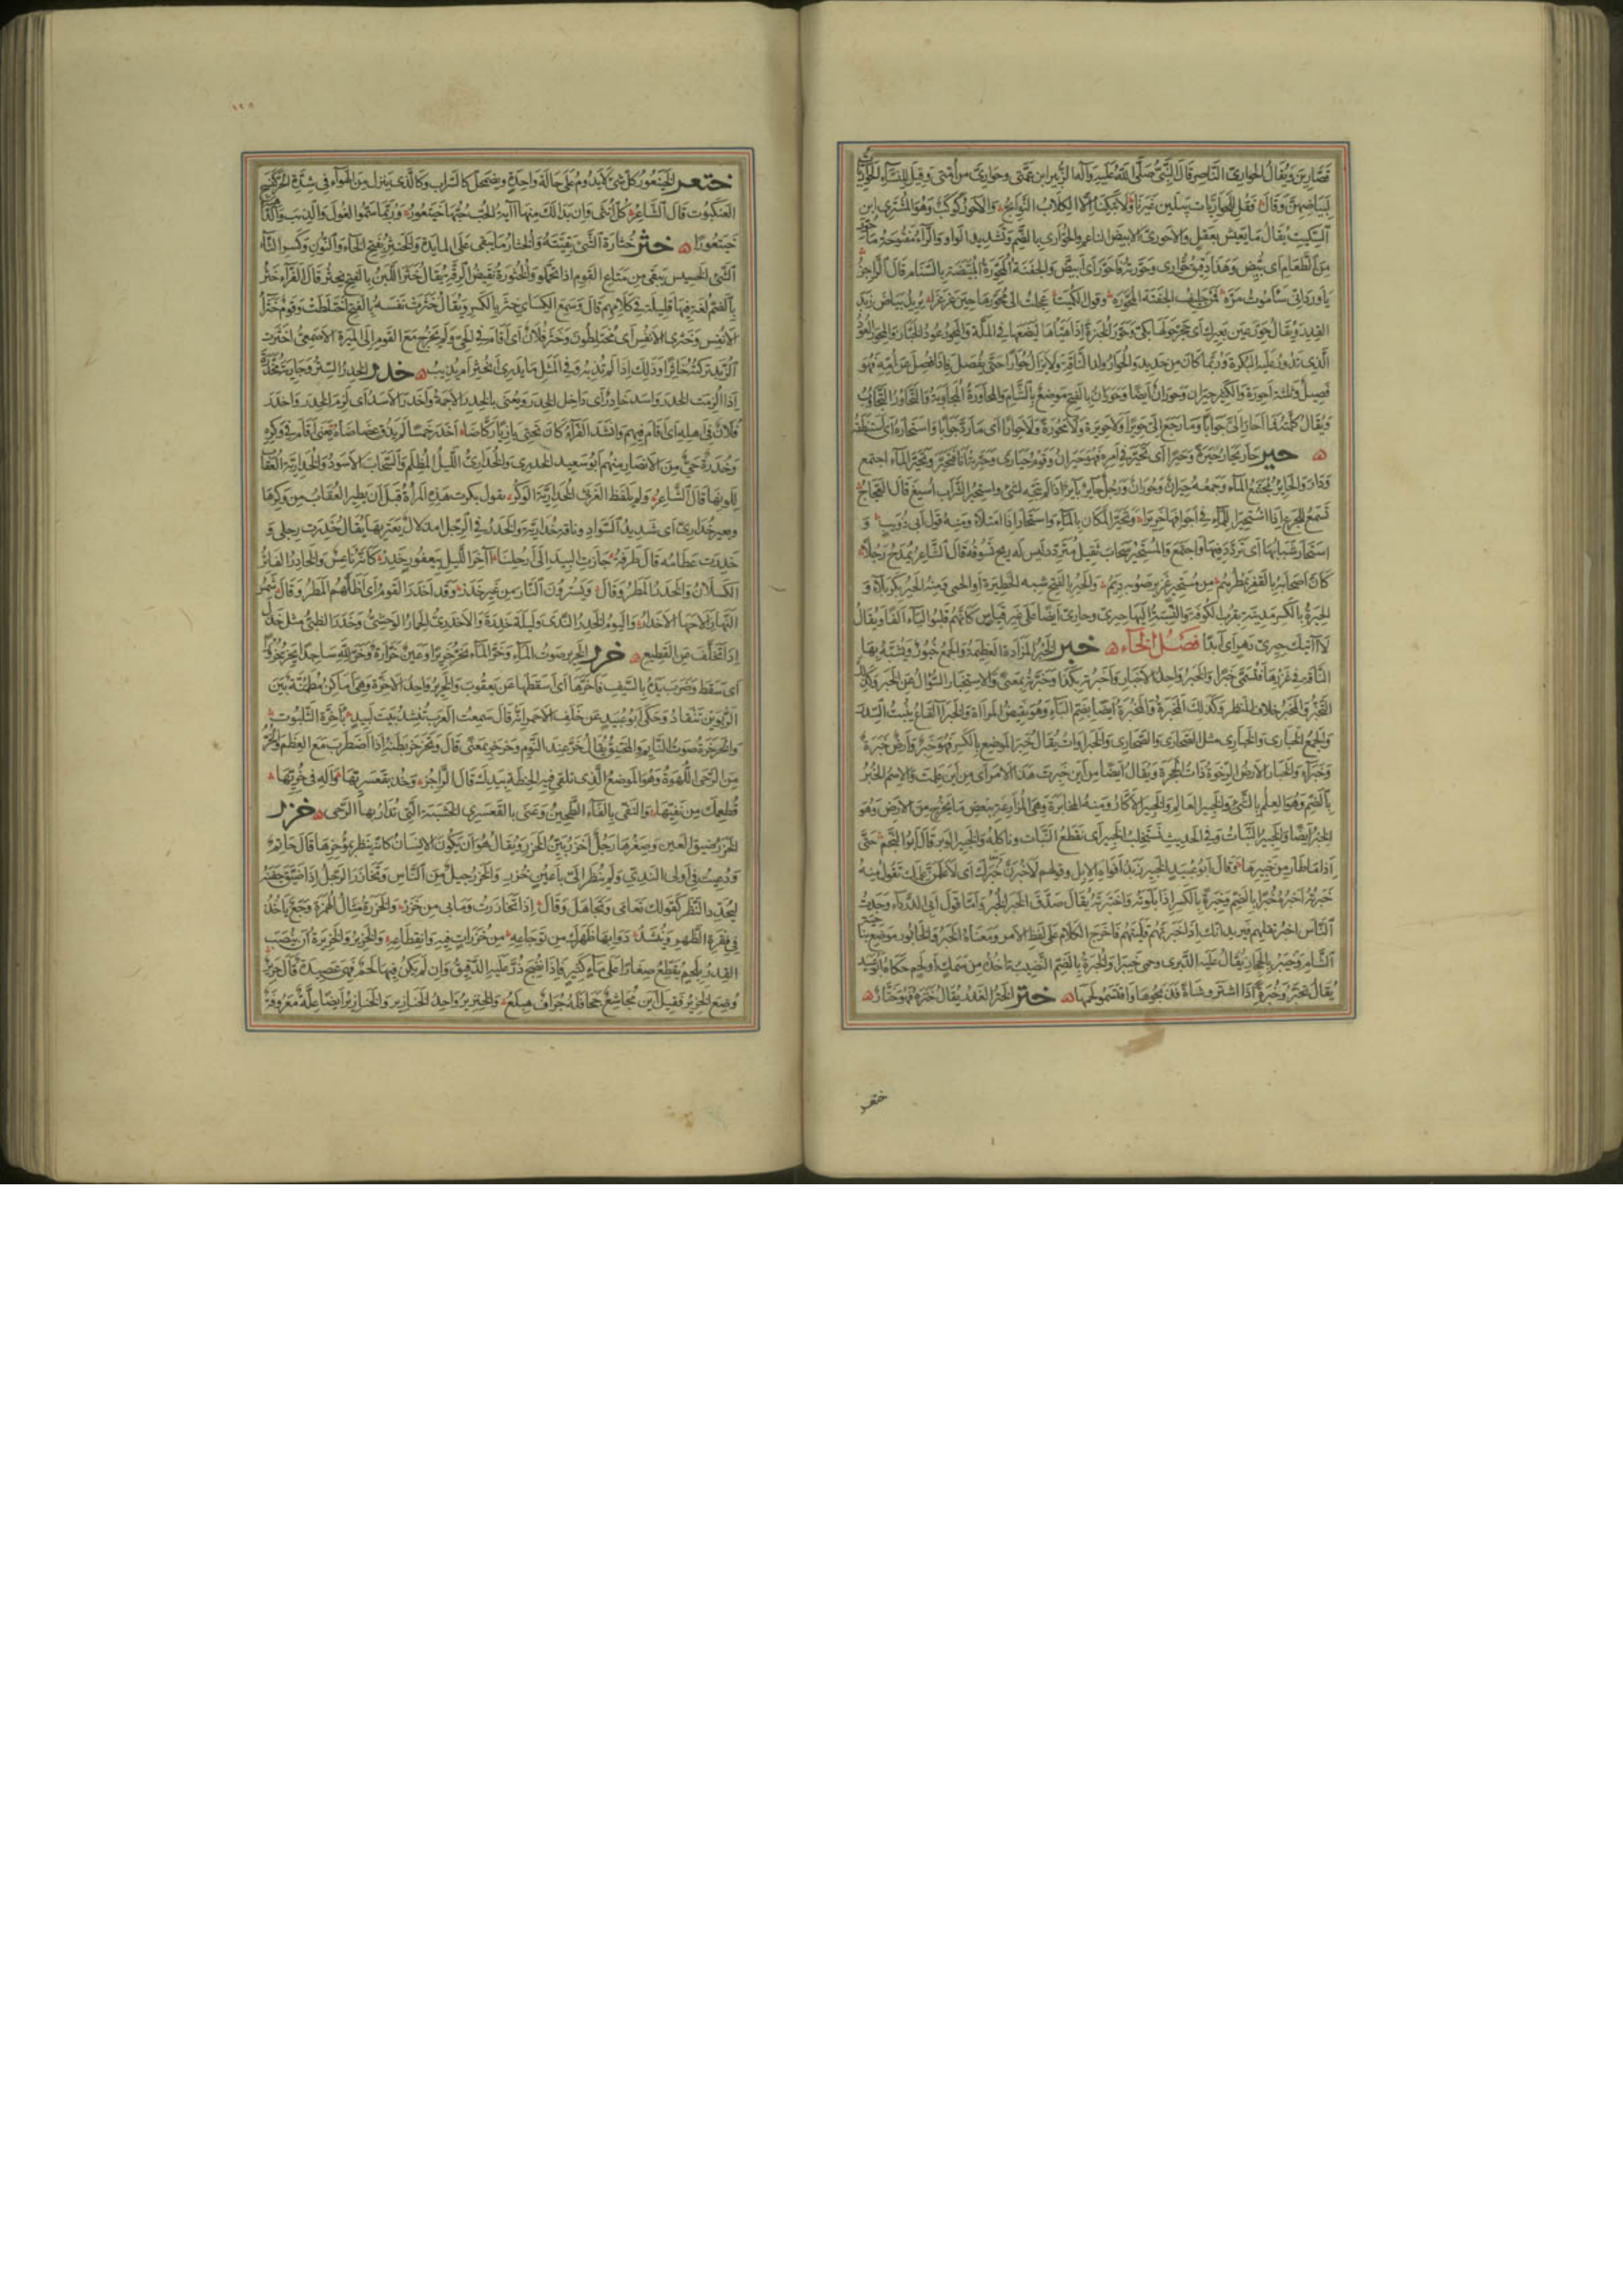 قصارين ويقال الحوارى الناصر قال النبي صلى الله عليه وآله الزبير ابن عمتى وحوارى من أمتى وقيل للنساء الحواريات
لبياضهن وقال فقل للحواريات يبكين غيرنا ولا تبكنا إلا الكلاب النوابح والاحور كوكب وهو المشترى ابن
السكيت يقال ما يعيش بأحور أى بعقل والاحورى الابيض الناعم والحوارى بالضم وتشديد الواو والراء مفتوحة ما حور
من الطعام اى بيض وهذا دقيق حوارى وحورته فاحور أى ابيض والجفنة المحورة المبيضة بالسنام قال الراجز
يا ورد انى سأموت مره فمن حليف الجفنة المحوره وقول الكميت عجلت الى محورها حين غرغرا يريد بياض زبد
القدر ويقال حور عين بعيرك أى حجر حولها بكى وحور الخبزة إذا هيأها ليضعها فى الملة والمحور عود الخباز والمحور العود
الذى تدور عليه البكرة وربما كان من حديد والحوار ولد الناقة ولا يزال حوارا حتى يفصل فاذا فصل عن امه فهو
فصيل وثلثة احورة والكثير حيران وحوران أيضا وحوران بالفتح موضع بالشام والمحاورة المجاوبة والتحاور التجاوب
ويقال كلمته فما احار الى جوابا وما رجع الى حويرا ولا حويرة ولا محورة ولا حوارا اى ما رد جوابا واستحاره أى استنطقه
حير حار يحار حيرة وحيرا أى تحير فى امره فهو حيران وقوم حيارى وحيرته أنا فتحير وتحير الماء اجتمع
ودار والحاير مجتمع الماء وجمعه حيران وحوران ورجل حاير باير اذا لم يتجه لشئ واستحير الشراب أسيغ قال العجاج
تسمع للجرع إذا استحيرا للماء فى أجوافها خريرا وتحير المكان بالماء واستحار اذا امتلأ ومنه قول ابى ذويب و
استحار شبابها اى تردد فيها واجتمع والمستحير سحاب ثقيل متردد ليس له ريح تسوقه قال الشاعر يمدح رجلا
كأن اصحابه بالقفر يمطرهم من مستحير غزير صوبه ديم والحير بالفتح شبه الحظيرة او الحمى ومنه الحير بكربلاء و
الحيرة بالكسر مدينة بقرب الكوفة والنسبة اليها حيرى وحارى ايضا على غير قياس كانهم قلبوا الياء الفا ويقال
لا آتيك حيرى دهر اى ابدا فصل الخاء خبر الخبر المزادة العظيمة والجمع خبور وتشبه بها
الناقة فى غزرها فتسمى خبرا والخبر واحد الاخبار وأخبرته بكذا وخبرته بمعنى والاستخبار السؤال عن الخبر وكذلك
التخبر والمخبر خلاف المنظر وكذلك المخبرة والمخبرة أيضا بضم الباء وهو نقيض المرآة والخبراء القاع ينبت السدر
والجمع الخبارى والخبارى مثل الصحارى والصحارى والخبراوات يقال خبر الموضع بالكسر فهو خبر وأرض خبرة
وخبراء والخبار الارض الرخوة ذات الجحرة ويقال ايضا من أين خبرت هذا الامر أى من أين علمت والاسم الخبر
بالضم وهو العلم بالشئ والخبير العالم والخبير الاكار ومنه المخابرة وهى المزارعة ببعض ما يخرج من الارض وهو
الخبر أيضا والخبير النبات وفى الحديث نستخلب الخبير أى نقطع النبات وناكله والخبير الوبر قال ابو النجم حتى
إذا ما طار من خبيرها وقال أبو عبيد الخبير زبد أفواه الابل وقولهم لأخبرن خبرك أى لأعلمن علمك تقول منه
خبرته أخبره خبرا بالضم وخبرة بالكسر إذا بلوته واختبرته يقال صدق الخبر الخبر وأما قول أبى الدرداء وجدت
الناس اخبر تقلهم فيريد انك إذا خبرتهم قليتهم فاخرج الكلام على لفظ الامر ومعناه الخبر والخابور موضع بناحية
الشام وخيبر بالحجاز يقال عليه الدبرى وحمى خيبرا والخبرة بالضم النصيب تأخذه من سمك او لحم حكاه ابو عبيد
يقال تخبروا خبرة إذا اشتروا شاة فذبحوها واقتسموا لحمها ختر الختر الغدر يقال ختره فهو ختار
ختعر
ختعر الخيتعور كل شئ لا يدوم على حالة واحدة ويضمحل كالسراب وكالذى ينزل من الهواء فى شدة الحر كنسج
العنكبوت قال الشاعر كل أنثى وان بدا لك منها آية الحب حبها خيتعور وربما سموا الغول والذئب والداهية
خيتعورا خثر خثارة الشئ بقيته والخثار ما يبقى على المايدة والخنثر بفتح الخاء والنون وكسر الثاء
الشئ الخسيس يبقى من متاع القوم اذا تحملوا والخثورة نقيض الرقة يقال خثر اللبن بالفتح يخثر قال الفراء خثر
بالضم لغة فيها قليلة فى كلامهم قال وسمع الكساى خثر بالكسر ويقال خثرت نفسه بالفتح اختلطت وقوم خثراء
الانفس وخثرى الانفس أى مختلطون وخثر فلان اى اقام فى الحى ولم يخرج مع القوم الى الميرة الاصمعى اخثرت
الزبد تركته خاثرا وذلك إذا لم تذبه وفى المثل ما يدرى أيخثر ام يذيب خدر الخدر الستر وجارية مخدرة
إذا ألزمت الخدر واسد خادر أى داخل الخدر ويعنى بالخدر الأجمة وأخدر الأسد أى لزم الخدر واخدر
فلان فى اهله اى أقام فيهم وانشد الفراء كأن تحتى بازيا ركاضا اخدر خمسا لم يذق عضاضا يعنى أقام فى وكره
وخدرة حى من الانصار منهم ابو سعيد الخدرى والخدارى الليل المظلم والسحاب الاسود والخدارية العقاب
للونها قال الشاعر ولم يلفظ الغرثى الخدارية الوكر يقول بكرت هذه المرأة قبل أن يطير العقاب من وكرها
وبعير خدارى اى شديد السواد وناقة خدارية والخدر فى الرجل امذلال يعتريها يقال خدرت رجلى و
خدرت عظامه قال طرفة جازت البيد الى أرحلنا آخر الليل بيعفور خدر كانه ناعس والخادر الفاتر
الكسلان والخدر المطر وقال ويسترون النار من غير خدر وقد اخدر القوم أى اظلهم المطر وقال شمر
النهار واليوم الخدر الندى وليلة خدرة والاخدرى الحمار الوحشى وخدر الظبى مثل خذل
إذا تخلف عن القطيع خرر الخرير صوت الماء وخر الماء يخر خريرا وعين خرارة وخر لله ساجدا يخر خرورا
اى سقط وضرب يده بالسيف فاخرها اى اسقطها عن يعقوب والخرير واحد الاخرة وهى أماكن مطمئنة بين
الربوين تنقاد وحكى ابو عبيد عن خلف الاحمر انه قال سمعت العرب تنشد بيت لبيد بأخرة الثلبوت
والخرخرة صوت النايم والمختنق يقال خر عند النوم وخرخر بمعنى قال وتخرخر بطنه إذا اضطرب مع العظم والخر
من الرحى اللهوة وهو الموضع الذى تلقى فيه الحنطة بيدك قال الراجز وخذ بقعسريها وأله فى خريها
تطعمك من نفيها والنفى بالفاء الطحين وعنى بالقعسرى الخشبة التى تدار بها الرحى خزر
الخزر ضيق العين وصغرها رجل أخزر بين الخزر ويقال هو أن يكون الانسان كانه ينظر بمؤخرها قال حاتم
ودعيت فى أولى الندى ولم ينظر الى بأعين خزر والخزر جيل من الناس وتخازر الرجل إذا ضيق جفنه
ليحدد النظر كقولك تعامى وتجاهل وقال إذا تخازرت وما بى من خزر والخزرة مثال الهمزة وجع ياخذ
فى فقرة الظهر وينشد داو بها ظهرك من توجاعه من خزرات فيه وانقطاعه والخزير والخزيرة أن تنصب
القدر بلحم يقطع صغارا على ماء كثير فاذا نضج ذر عليه الدقيق وان لم يكن فيها لحم فهى عصيدة قال جرير
وضع الخزير فقيل أين مجاشع فشحا جحافله جراف هبلع والخنزير واحد الخنازير والخنازير أيضا علة معروفة